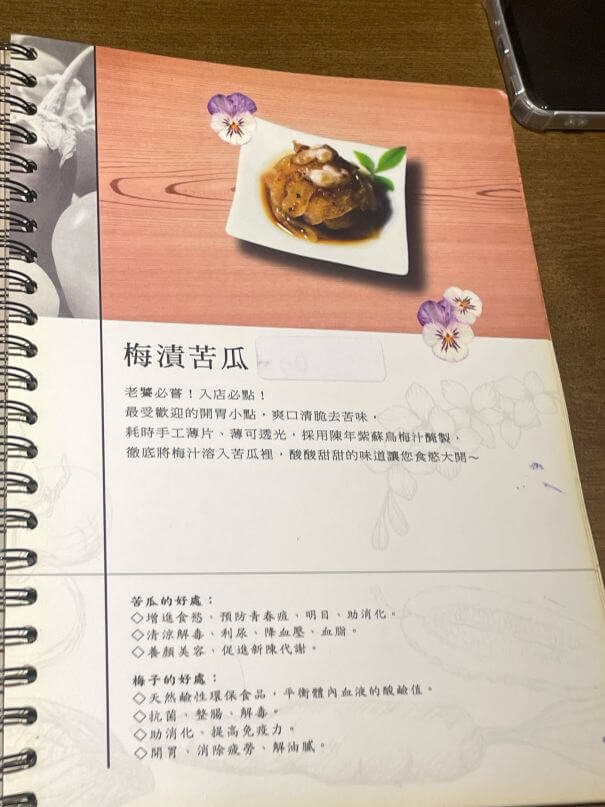 梅漬苦瓜
老饕必嘗！入店必點！
最受歡迎的開胃小點，爽口清脆去苦味，
耗時手工薄片、薄可透光，採用陳年紫蘇烏梅汁醃製，
徹底將梅汁溶入苦瓜裡，酸酸甜甜的味道讓您食慾大開～
苦瓜的好處：
◇增進食慾、預防青春痘、明目、助消化。
◇清涼解毒、利尿、降血壓、血脂。
◇養顏美容、促進新陳代謝。
梅子的好處：
◇天然鹼性環保食品，平衡體內血液的酸鹼值。
◇抗菌、整腸、解毒。
◇助消化、提高免疫力。
◇開胃、消除疲勞、解油膩。